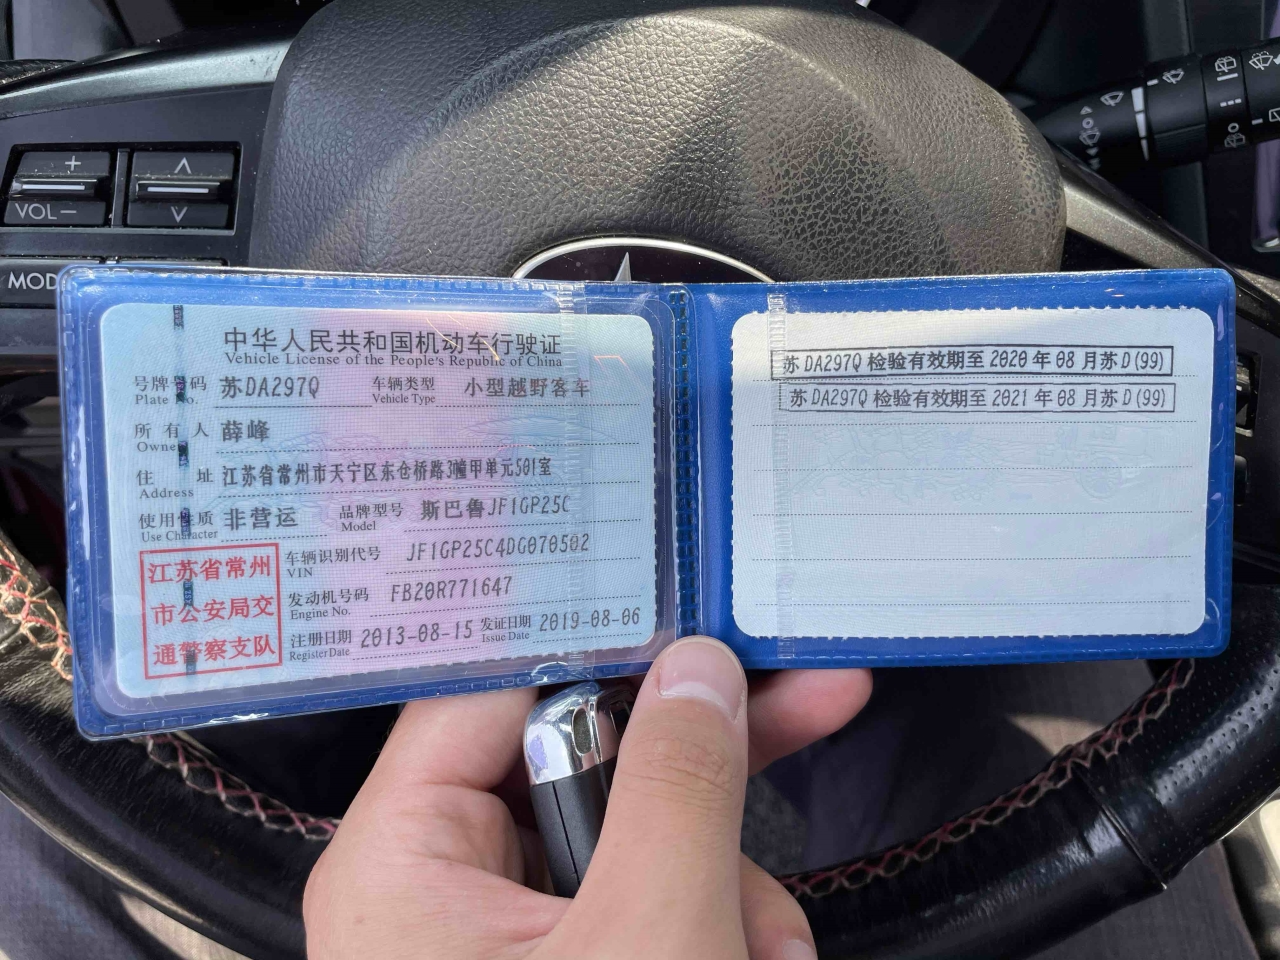 VOL－
＋
MOD
中华人民共和国机动车行驶证
Vehicle License of the People's Republic of China
号牌 码 苏DA297Q 车辆类型 小型越野客车
Plate No. Vehicle Type
所有人 薛峰
Owne
住 址 江苏省常州市天宁区东仓桥路3幢甲单元501室
Address
使用性质 非营运 品牌型号 斯巴鲁JF1GP25C
Use Character Model
车辆识别代号 JF1GP25C4DG070502
VIN
发动机号码 FB20R771647
Engine No.
注册日期 2013-08-15 发证日期 2019-08-06
Register Date Issue Date
江苏省常州
市公安局交
通警察支队
苏DA297Q 检验有效期至 2020 年 08 月苏D(99)
苏DA297Q 检验有效期至 2021 年 08 月苏D(99)